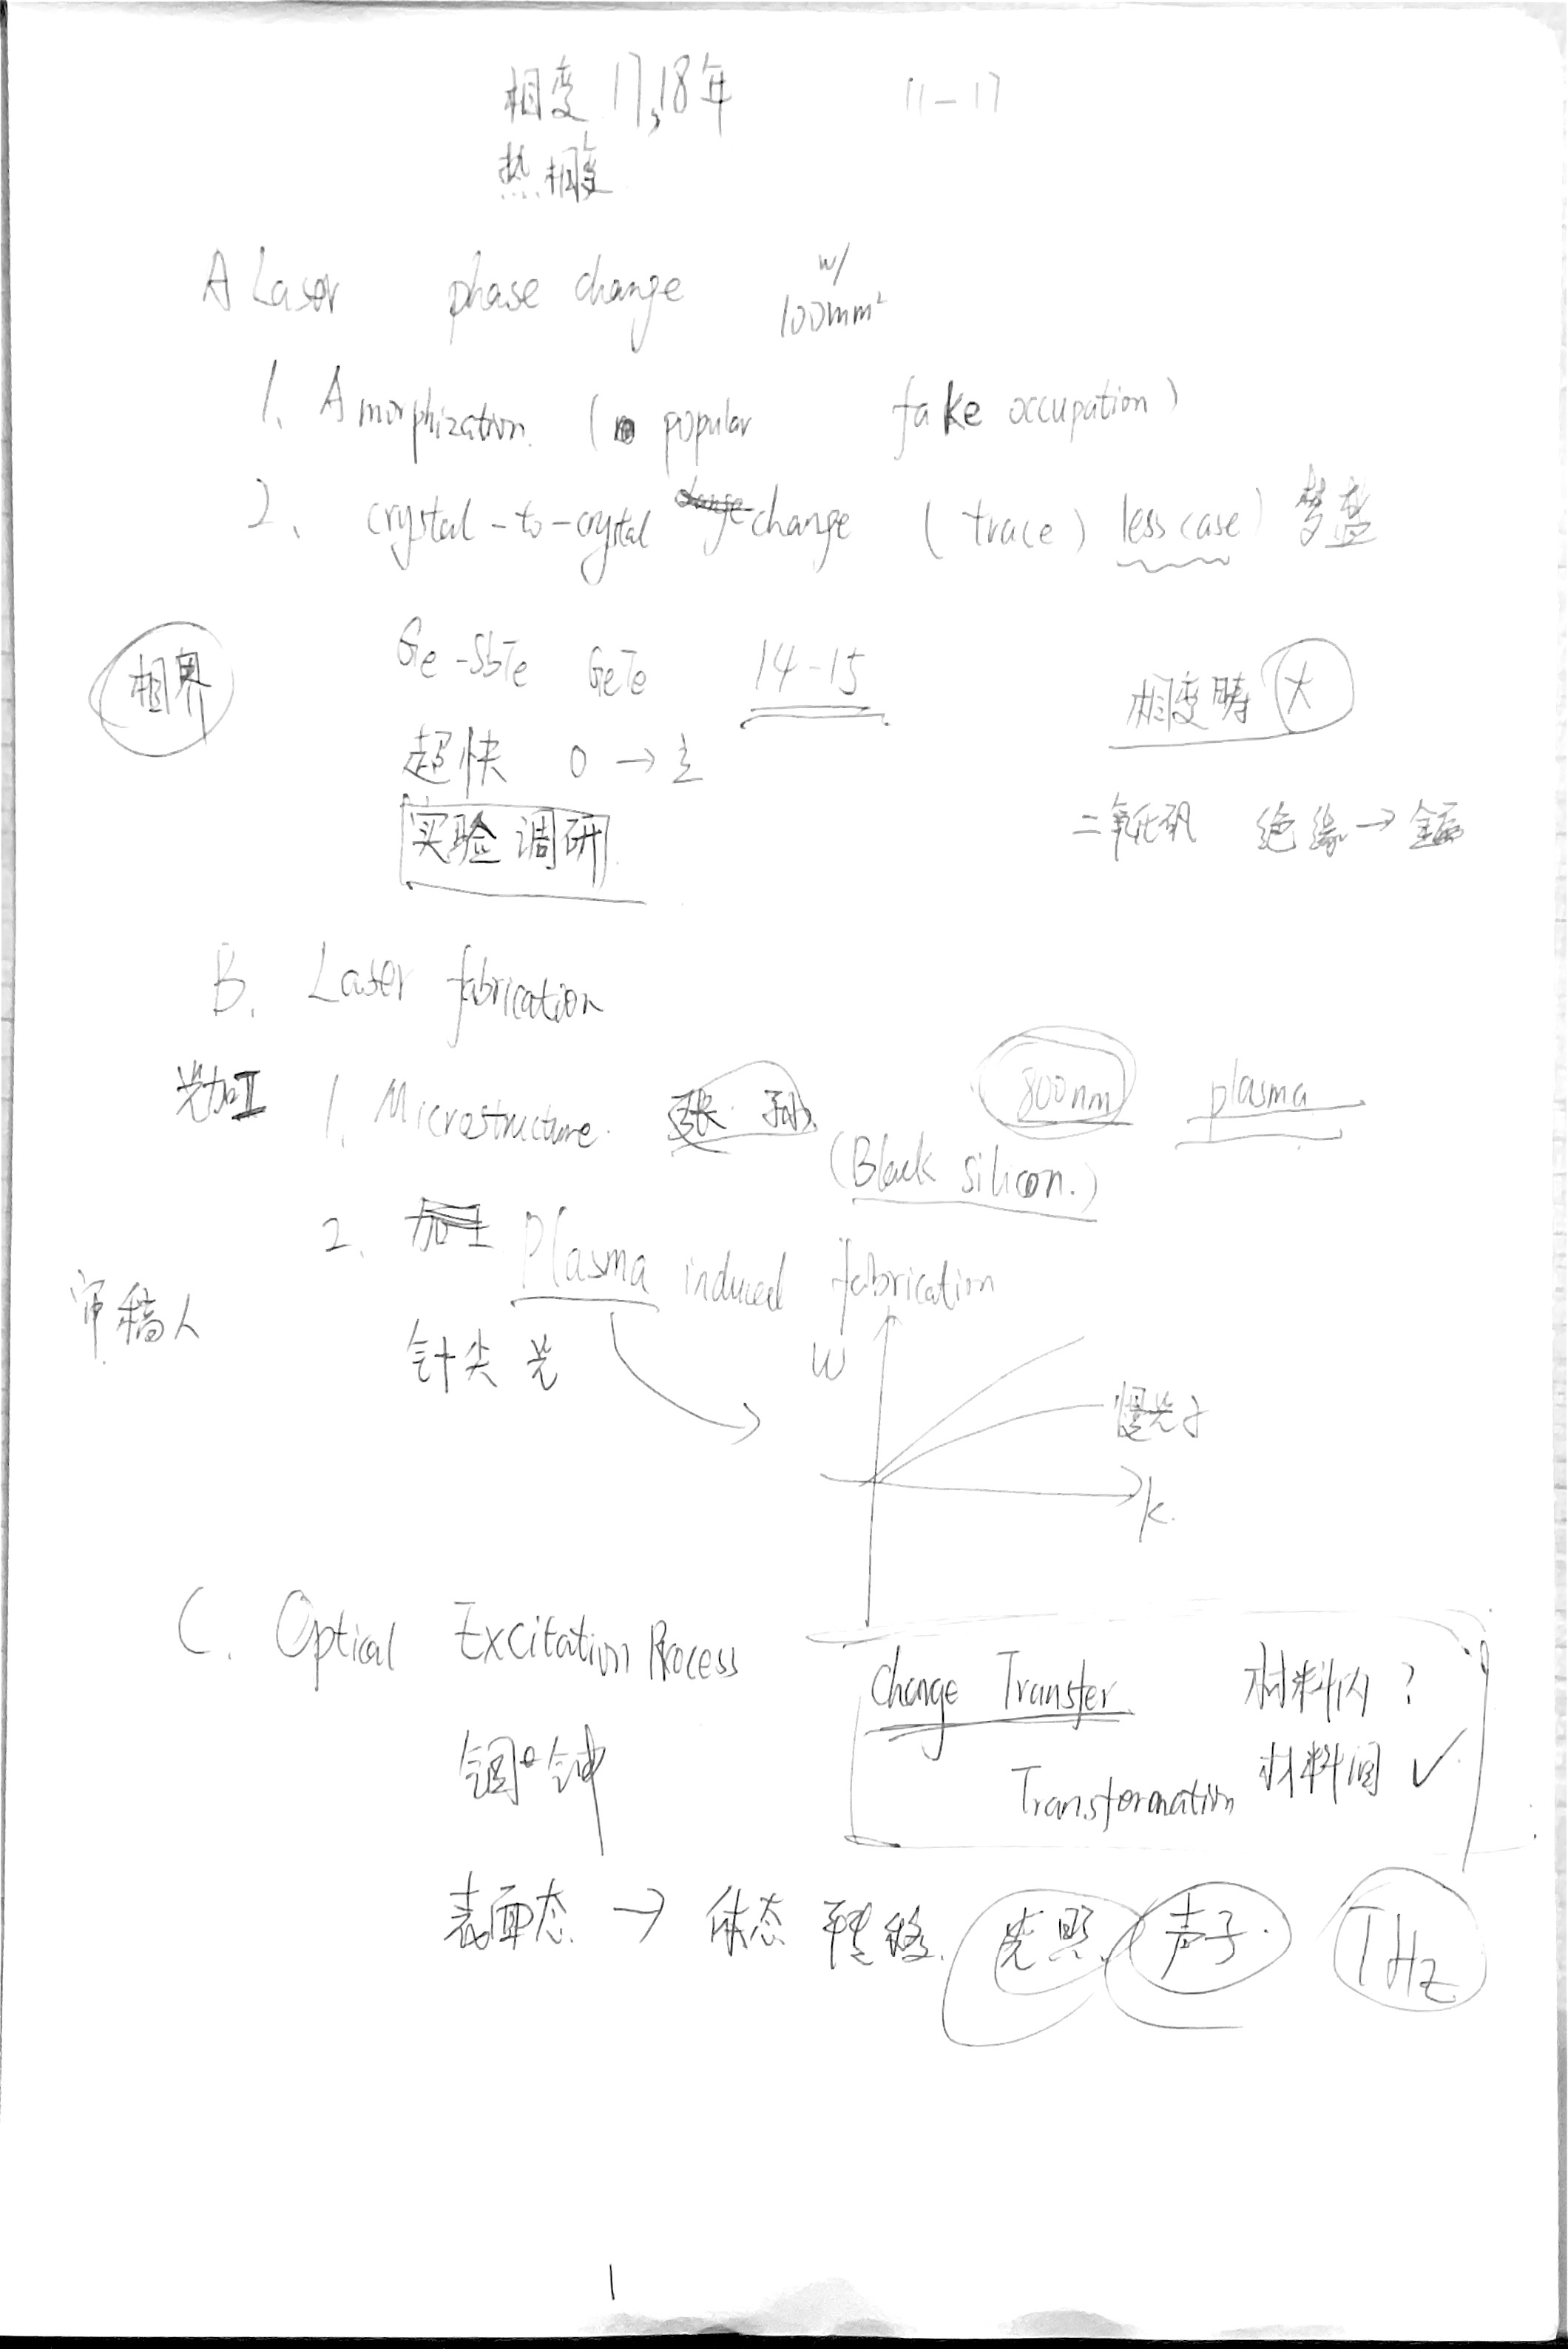 相变 17,18年 11-17
热相变
A Laser phase change w/ 100mm²
1. Amorphization. (popular fake occupation)
2. crystal-to-crystal change (trace) less case)
相界
Ge-SbTe GeTe 14-15
相变畴 大
超快 0 →
实验调研
二氧化矾 绝缘→金属
B. Laser fabrication
光加工 1. Microstructure.
800nm plasma
(Black silicon.)
2. Plasma induced fabrication
审稿人
针尖 光
ω
慢光子
k.
C. Optical Excitation Process
Charge Transfer 材料内?
Transformation 材料间 ✓
表面态 → 体态 转移. 光照. 声子. THz
1